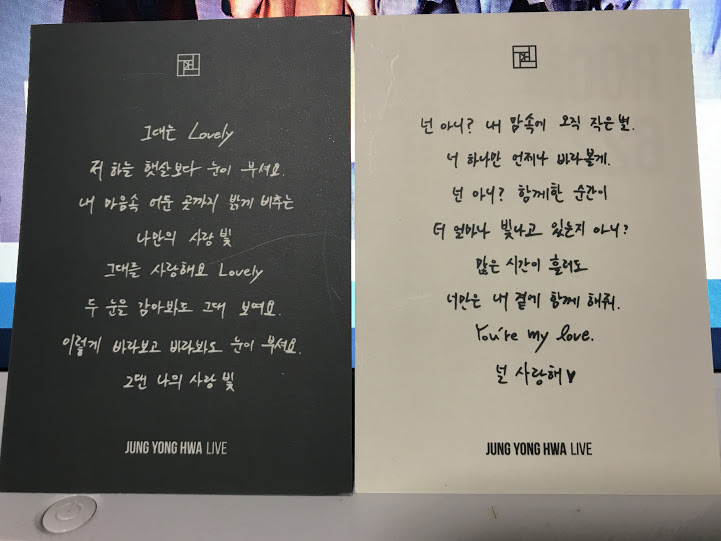 그대는 Lovely
저 하늘 햇살보다 눈이 부셔요.
내 마음속 어둔 곳까지 밝게 비추는
나만의 사랑 빛
그대를 사랑해요 Lovely
두 눈을 감아봐도 그대 보여요.
이렇게 바라보고 바라봐도 눈이 부셔요.
그댄 나의 사랑 빛
JUNG YONG HWA LIVE
넌 아니? 내 맘속에 오직 작은 별.
너 하나만 언제나 바라볼게.
넌 아니? 함께한 순간이
더 얼마나 빛나고 있는지 아니?
많은 시간이 흘러도
너만은 내 곁에 함께 해줘.
You're my love.
널 사랑해♥
JUNG YONG HWA LIVE